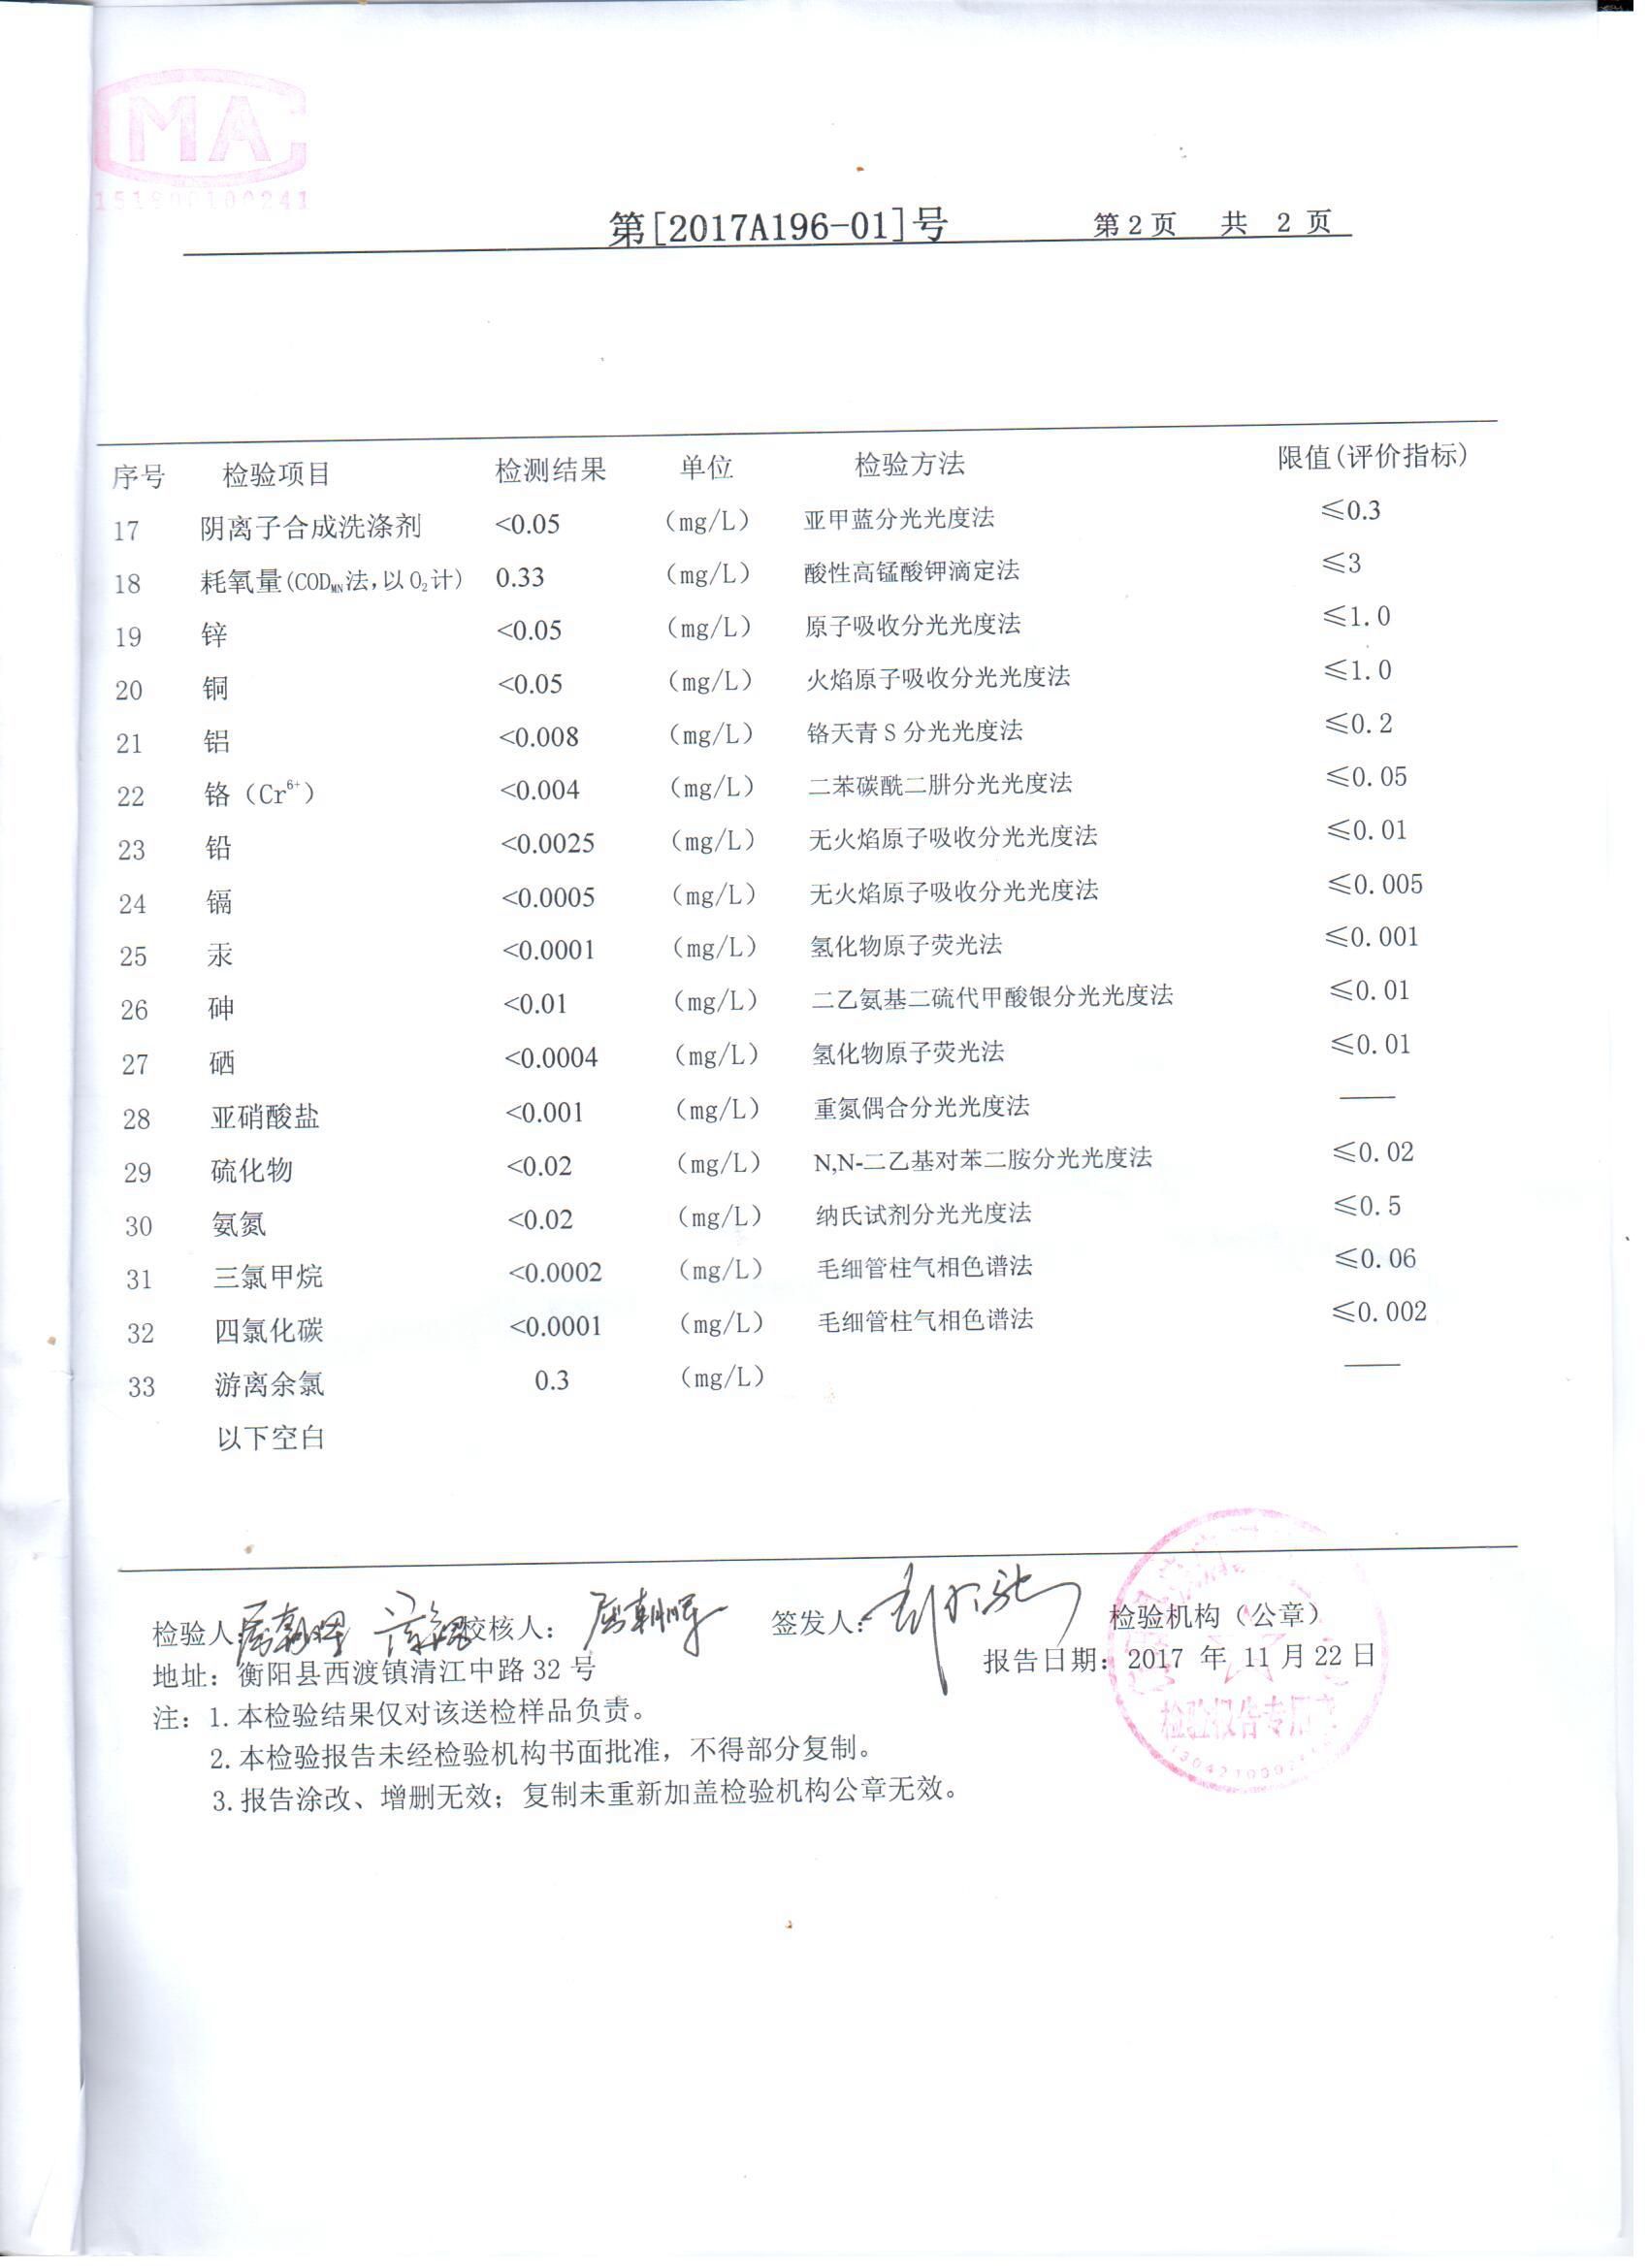 CMA
第[2017A196-01]号 第2页 共 2 页
序号 检验项目 检测结果 单位 检验方法 限值(评价指标)
17 阴离子合成洗涤剂 <0.05 (mg/L) 亚甲蓝分光光度法 ≤0.3
18 耗氧量(CODMN法,以O2计) 0.33 (mg/L) 酸性高锰酸钾滴定法 ≤3
19 锌 <0.05 (mg/L) 原子吸收分光光度法 ≤1.0
20 铜 <0.05 (mg/L) 火焰原子吸收分光光度法 ≤1.0
21 铝 <0.008 (mg/L) 铬天青S分光光度法 ≤0.2
22 铬（Cr6+） <0.004 (mg/L) 二苯碳酰二肼分光光度法 ≤0.05
23 铅 <0.0025 (mg/L) 无火焰原子吸收分光光度法 ≤0.01
24 镉 <0.0005 (mg/L) 无火焰原子吸收分光光度法 ≤0.005
25 汞 <0.0001 (mg/L) 氢化物原子荧光法 ≤0.001
26 砷 <0.01 (mg/L) 二乙氨基二硫代甲酸银分光光度法 ≤0.01
27 硒 <0.0004 (mg/L) 氢化物原子荧光法 ≤0.01
28 亚硝酸盐 <0.001 (mg/L) 重氮偶合分光光度法 ——
29 硫化物 <0.02 (mg/L) N,N-二乙基对苯二胺分光光度法 ≤0.02
30 氨氮 <0.02 (mg/L) 纳氏试剂分光光度法 ≤0.5
31 三氯甲烷 <0.0002 (mg/L) 毛细管柱气相色谱法 ≤0.06
32 四氯化碳 <0.0001 (mg/L) 毛细管柱气相色谱法 ≤0.002
33 游离余氯 0.3 (mg/L) ——
以下空白
检验人 校核人： 签发人： 检验机构（公章）
地址：衡阳县西渡镇清江中路32号 报告日期：2017 年 11月22日
注：1.本检验结果仅对该送检样品负责。
2.本检验报告未经检验机构书面批准，不得部分复制。
3.报告涂改、增删无效；复制未重新加盖检验机构公章无效。
检验报告专用章